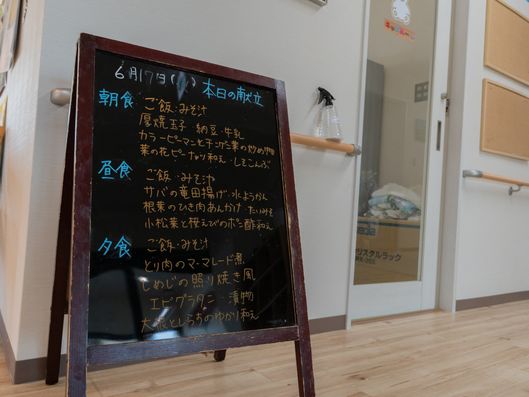 6月17日( ) 本日の献立
朝食 ご飯・みそ汁
厚焼玉子 納豆・牛乳
カラーピーマンとチンゲン菜の炒め物
菜の花ピーナッツ和え・しそこんぶ
昼食 ご飯・みそ汁
サバの竜田揚げ・水ようかん
根菜のひき肉あんかけ・たいみそ
小松菜と桜えびのポン酢和え
夕食 ご飯・みそ汁
とり肉のマーマレード煮
しめじの照り焼き風
エビグラタン・漬物
大根としらすのゆかり和え
リスタルラック